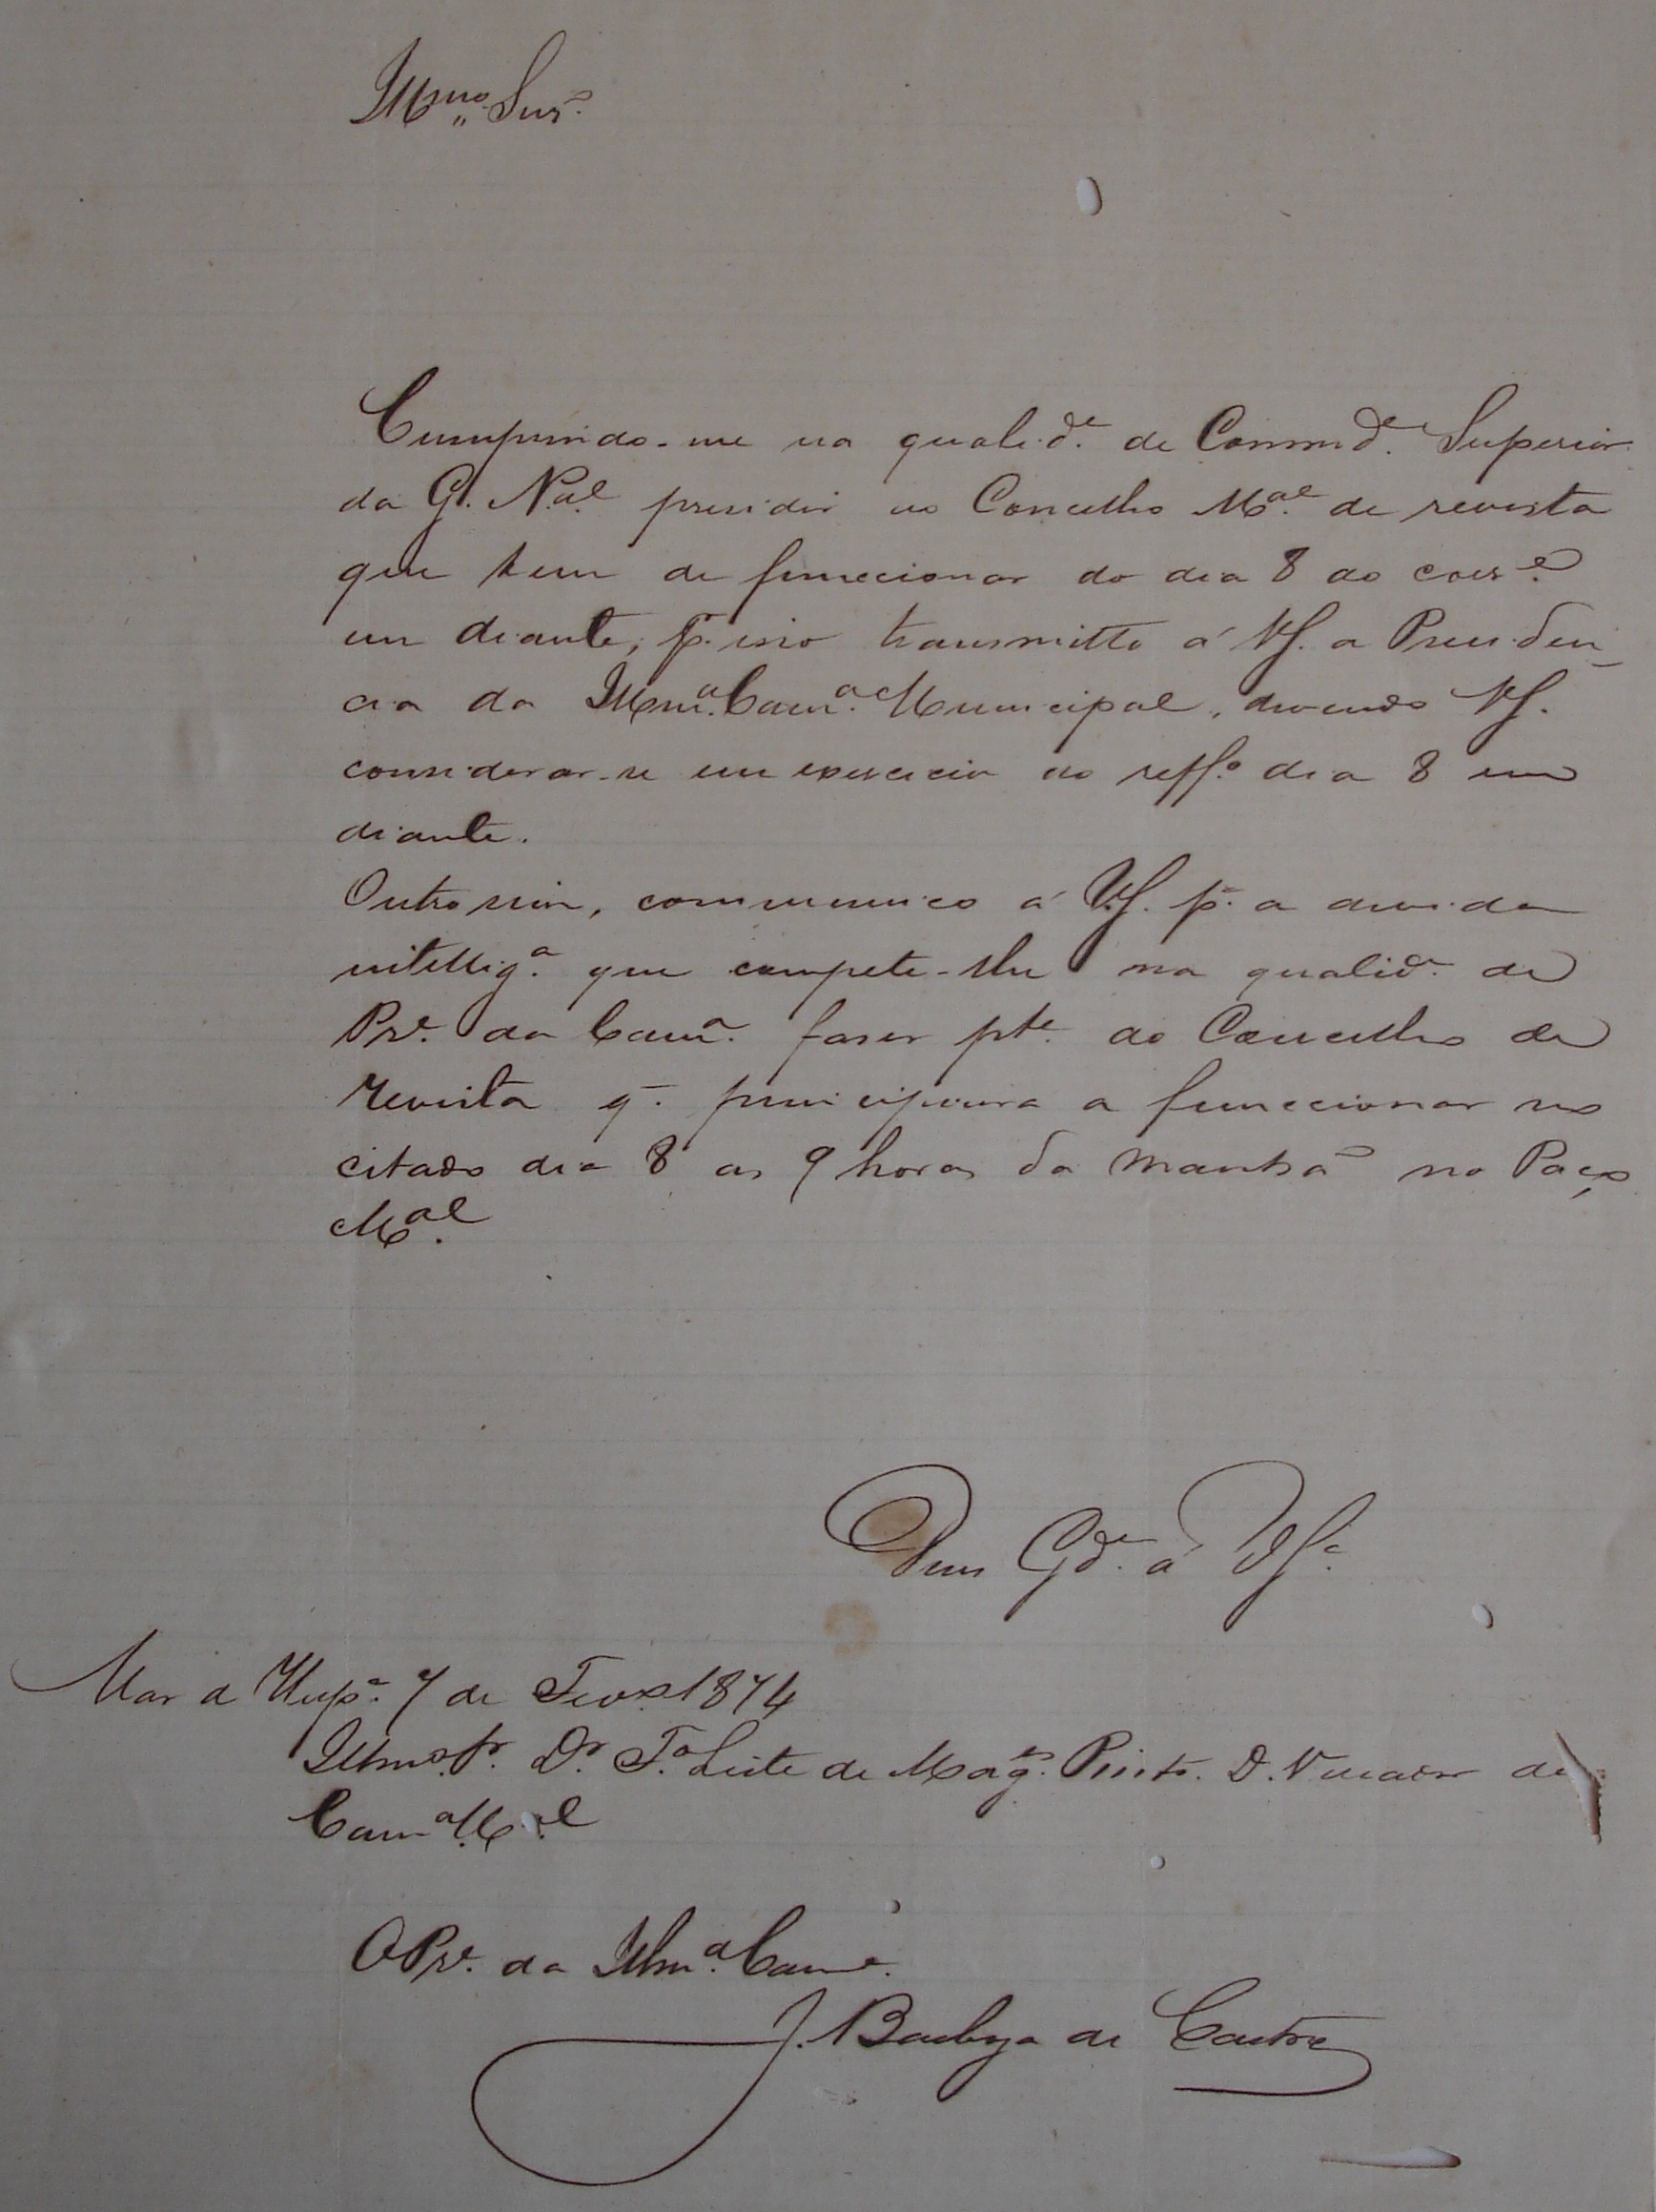 Illmo Snr.
Cumprindo-me na qualid.e de Commd.e Superior
da G. N.al presidir ao Concelho M.al de revista
que tem de funccionar do dia 8 do corr.e
em diante, p. isso transmitto á VS. a Presiden-
cia da Illm.a Cam.a Municipal, devendo VS.
considerar-se em exercicio do reff.o dia 8 em
diante.
Outro sim, communico á V.S. p.a a devida
intellig.a que compete-lhe na qualid.e de
Pr.e da Cam.a faser pt.e do Concelho de
revista q. principiara a funccionar no
citado dia 8 as 9 horas da manhã no Paço
M.al
Deus Gd.e á VS.a
Mar de Hesp.a 7 de Fev.o 1874
Illmo. Sr. Dr. F.o Leite de Mag.es Pinto. D. Vereador da
Cam.a M.al
O Pr.e da Illm.a Cam.a
J. Barboza de Castro